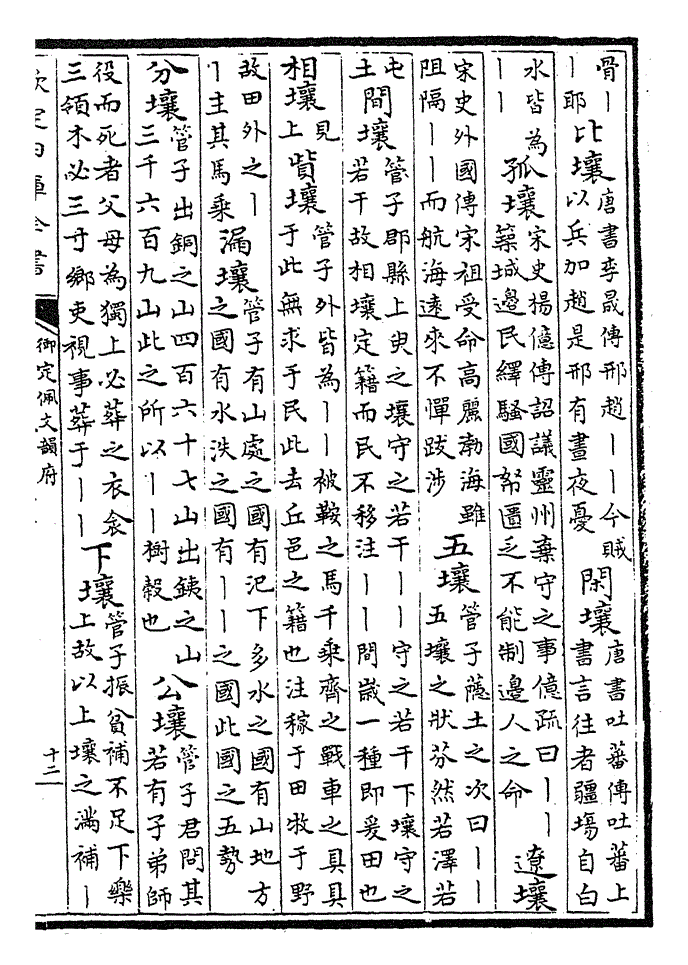 骨｜｜耶比壤唐書李晟傳邢趙｜｜今賊以兵加趙是邢有晝夜憂閑壤唐書吐蕃傳吐蕃上書言往者疆場自白
水皆為｜｜孤壤宋史楊億傳詔議靈州棄守之事億疏曰｜｜築城邊民繹騷國帑匱乏不能制邊人之命遼壤
宋史外國傳宋祖受命高麗渤海雖阻隔｜｜而航海遠來不憚跋涉五壤管子蘟土之次曰｜｜五壤之狀芬然若澤若
屯土間壤管子郡縣上臾之壤守之若干｜｜守之若干下壤守之若干故相壤定籍而民不移注｜｜間歲一種即爰田也
相壤見上貲壤管子外皆為｜｜被鞍之馬千乘齊之戰車之具具于此無求于民此去丘邑之籍也注稼于田牧于野
故田外之｜｜主其馬乘漏壤管子有山處之國有汜下多水之國有山地方之國有水泆之國有｜｜之國此國之五勢
分壤管子出銅之山四百六十七山出鐵之山三千六百九山此之所以｜｜樹穀也公壤管子君問其若有子弟師
役而死者父母為獨上必葬之衣衾三領木必三寸鄉吏視事葬于｜｜下壤管子振貧補不足下樂上故以上壤之滿補｜
欽定四庫全書
御定佩文韻府
十二